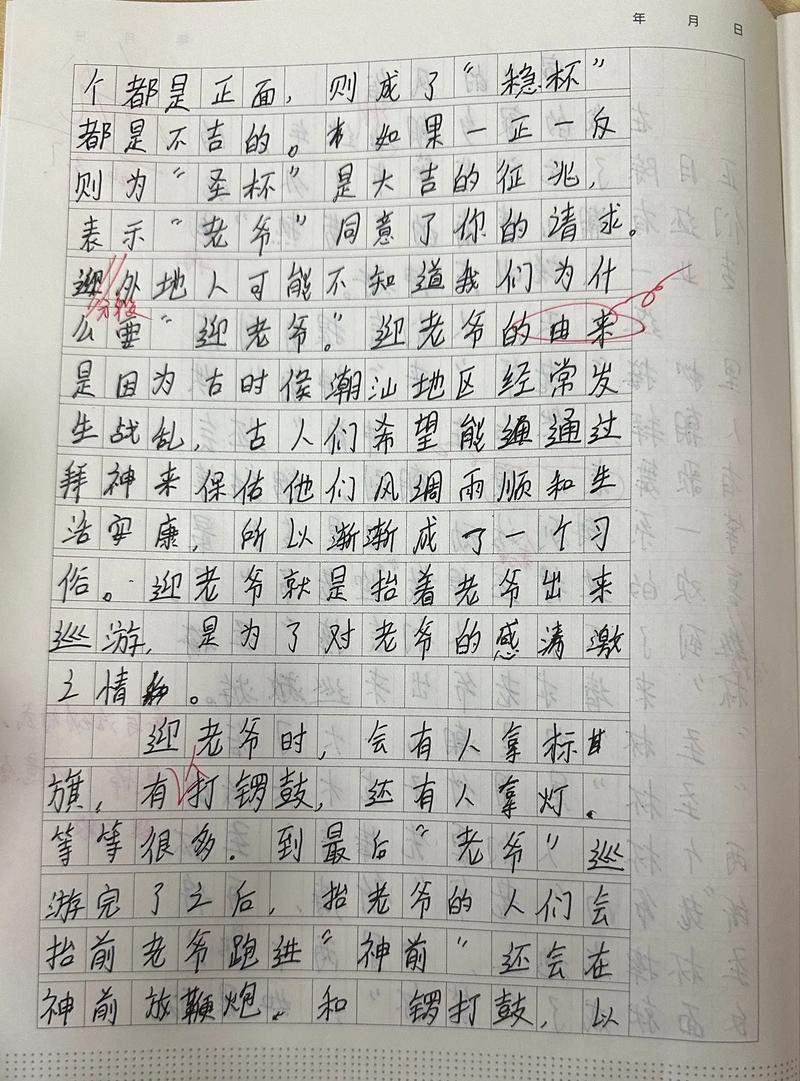 年 月 日
个都是正面，则成了“稳杯”
都是不吉的。如果一正一反
则为“圣杯”是大吉的征兆，
表示“老爷”同意了你的请求。
外地人可能不知道我们为什
分段
么要“迎老爷。”迎老爷的由来
是因为古时侯潮汕地区经常发
生战乱，古人们希望能通过
拜神来保估他们风调雨顺和生
活安康，所以渐渐成了一个习
俗。迎老爷就是抬着老爷出来
巡游，是为了对老爷的感激
之情。
迎老爷时，会有人拿标
旗，有打锣鼓，还有人拿灯。
等等很多。到最后“老爷”巡
游完了之后，抬老爷的人们会
抬前老爷跑进“神前”还会在
神前放鞭炮。和 锣打鼓，以